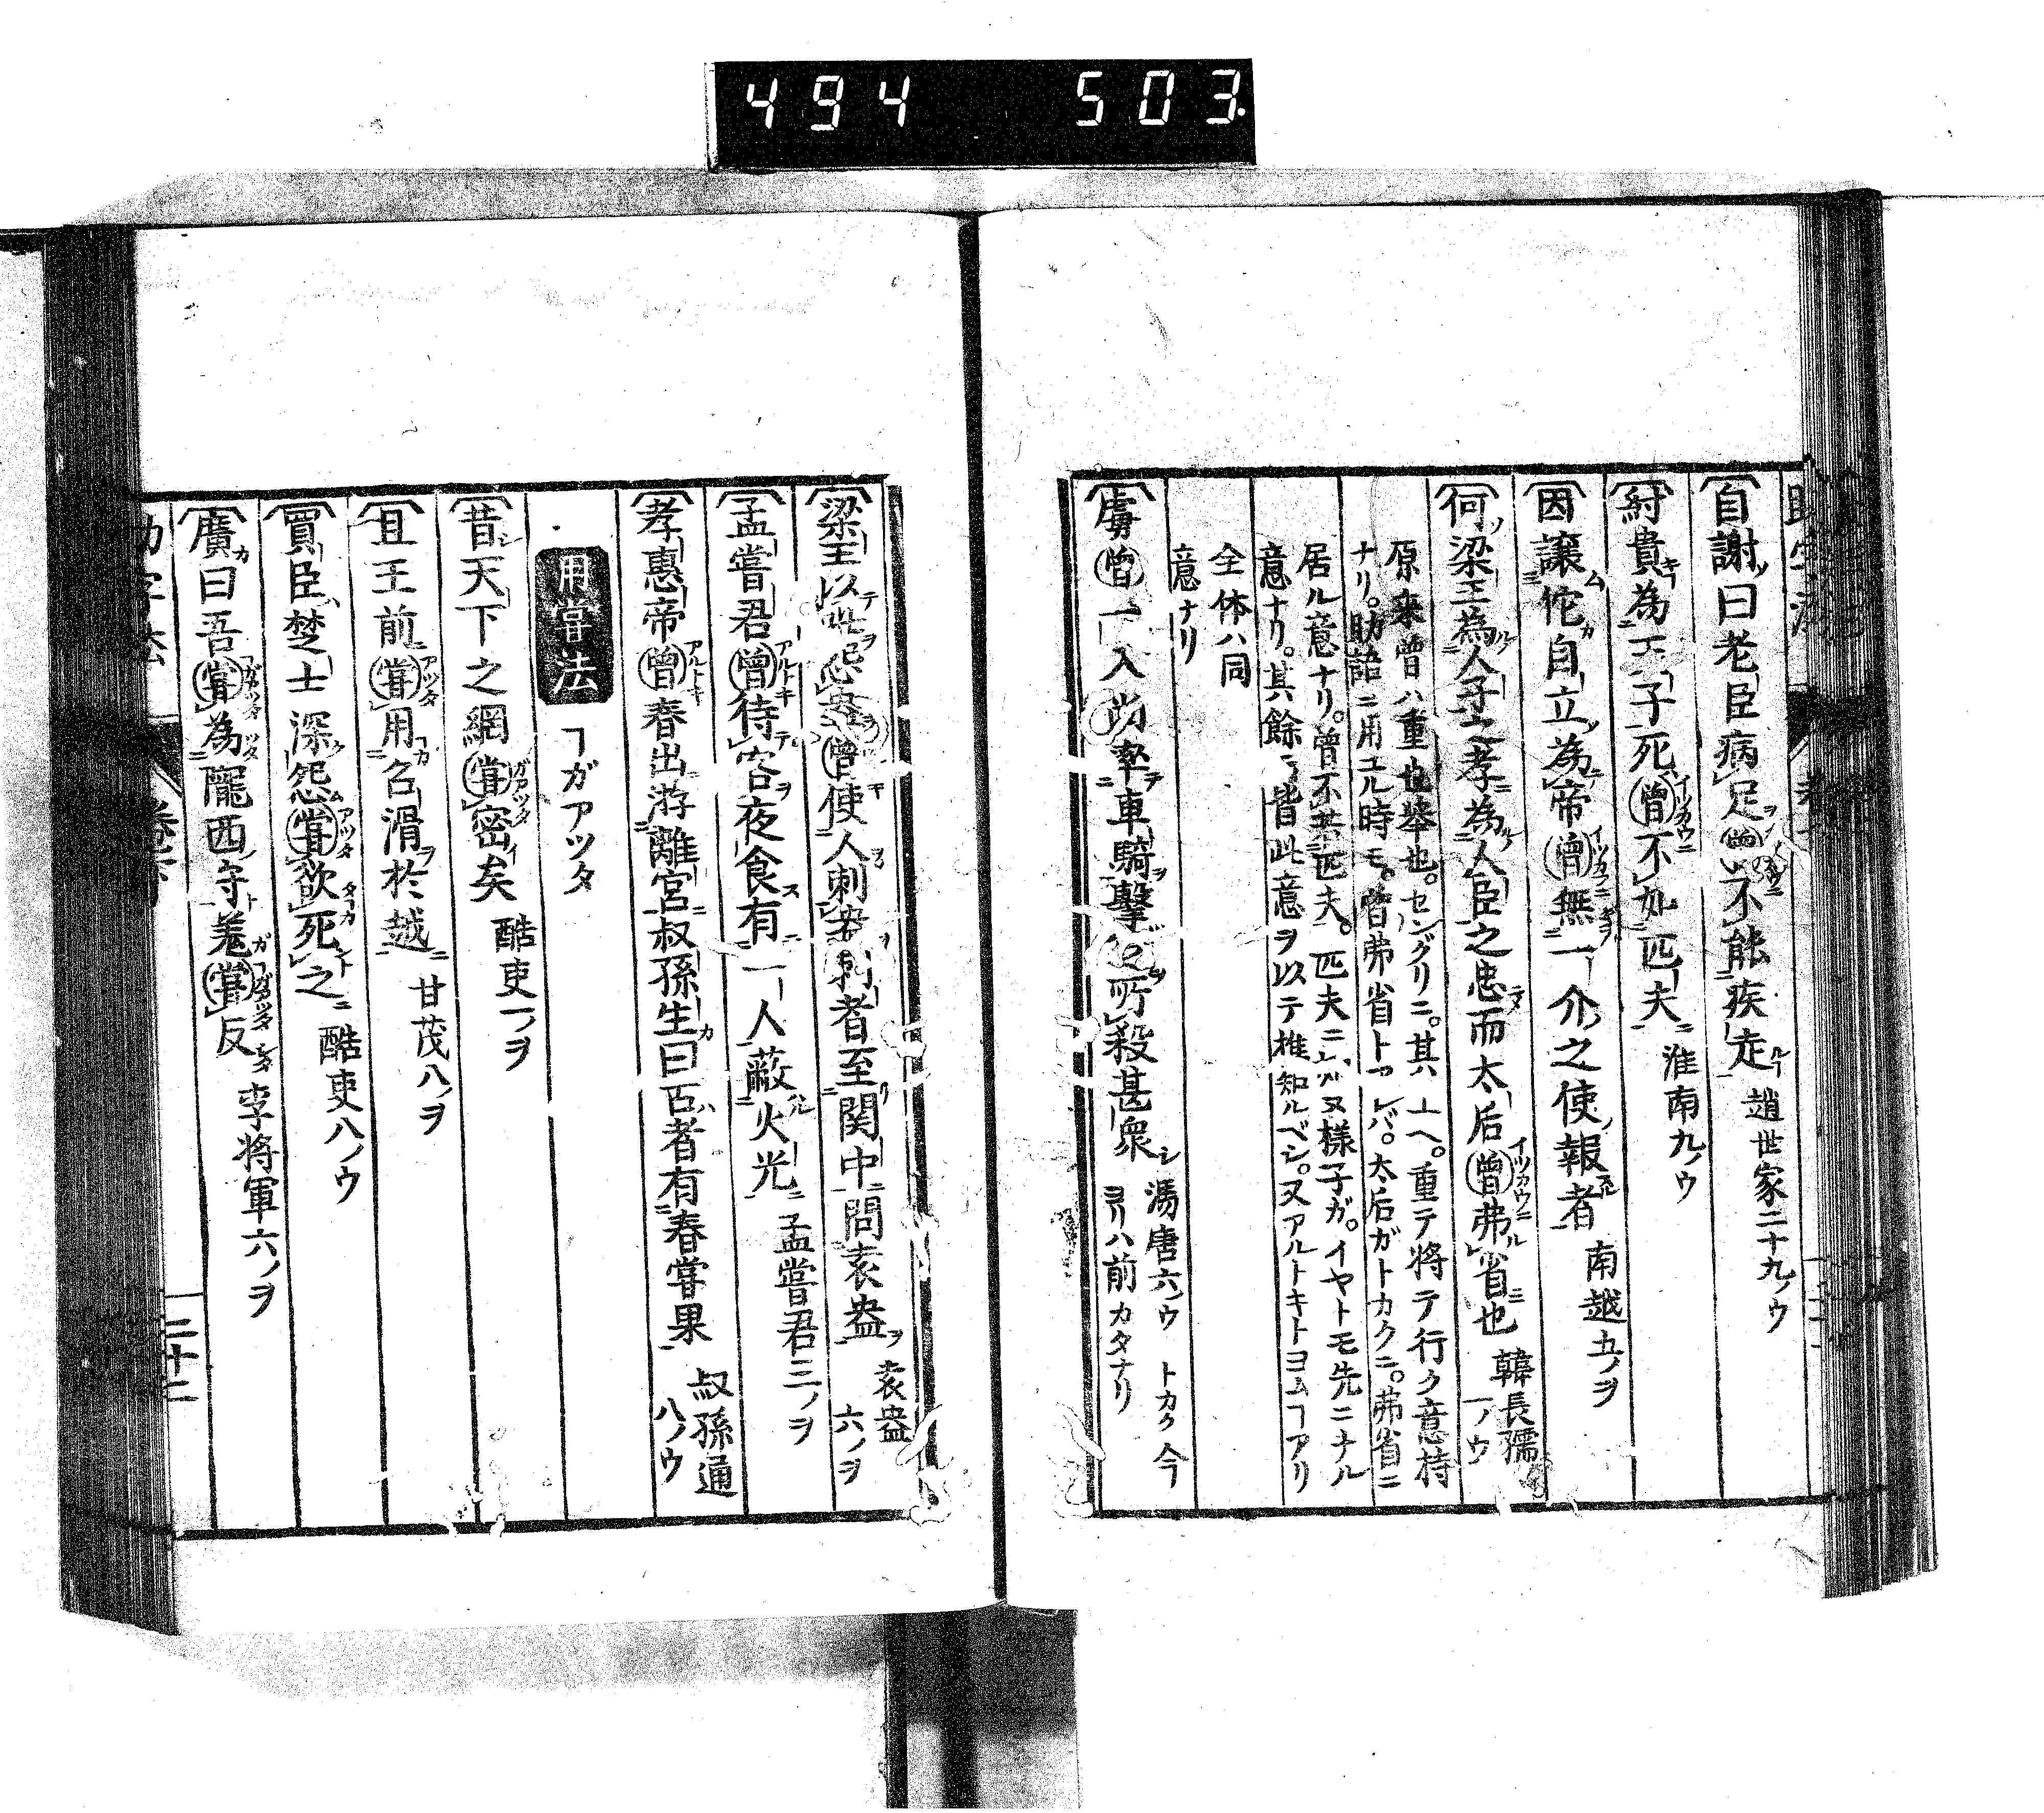 494 503
自謝曰老臣病足曾不能疾走 趙世家二十九ノウ
紂貴為王子死曾不如匹夫 淮南九ノウ
因讓佗自立為帝曾無一介之使報者 南越五ノヲ
何梁王為人子之孝為人臣之忠而太后曾弗省也 韓長孺一ノウ
原來曾ハ重也擧也。センクリニ。其上ヘ。重テ將テ行ク意持
ナリ。助語ニ用ユル時モ。曾弗省トアレバ。太后ガトカクニ。弗省ニ
居ル意ナリ。曾不若匹夫。匹夫ニ又樣子ガ。イヤトモ先ニナル
意ナリ。其餘皆此意ヲ以テ推知ルベシ。又アルトキトヨムヿアリ
全体ハ同
意ナリ
虜曾一入尚率車騎擊之所殺甚衆 馮唐六ノウ トカク今ヨリハ前カタナリ
梁王以此怨盎曾使人刺盎刺者至関中問袁盎 袁盎六ノヲ
孟嘗君曾待客夜食有一人蔽火光 孟嘗君三ノヲ
孝惠帝曾春出游離宮叔孫生曰古者有春嘗果 叔孫通八ノウ
用甞法 ヿガアツタ
昔天下之網甞密矣 酷吏一ノヲ
且王前甞用召滑於越 甘茂八ノヲ
買臣楚士深怨甞欲死之 酷吏八ノウ
廣曰吾甞為隴西守羌甞反 李將軍六ノヲ
二十二